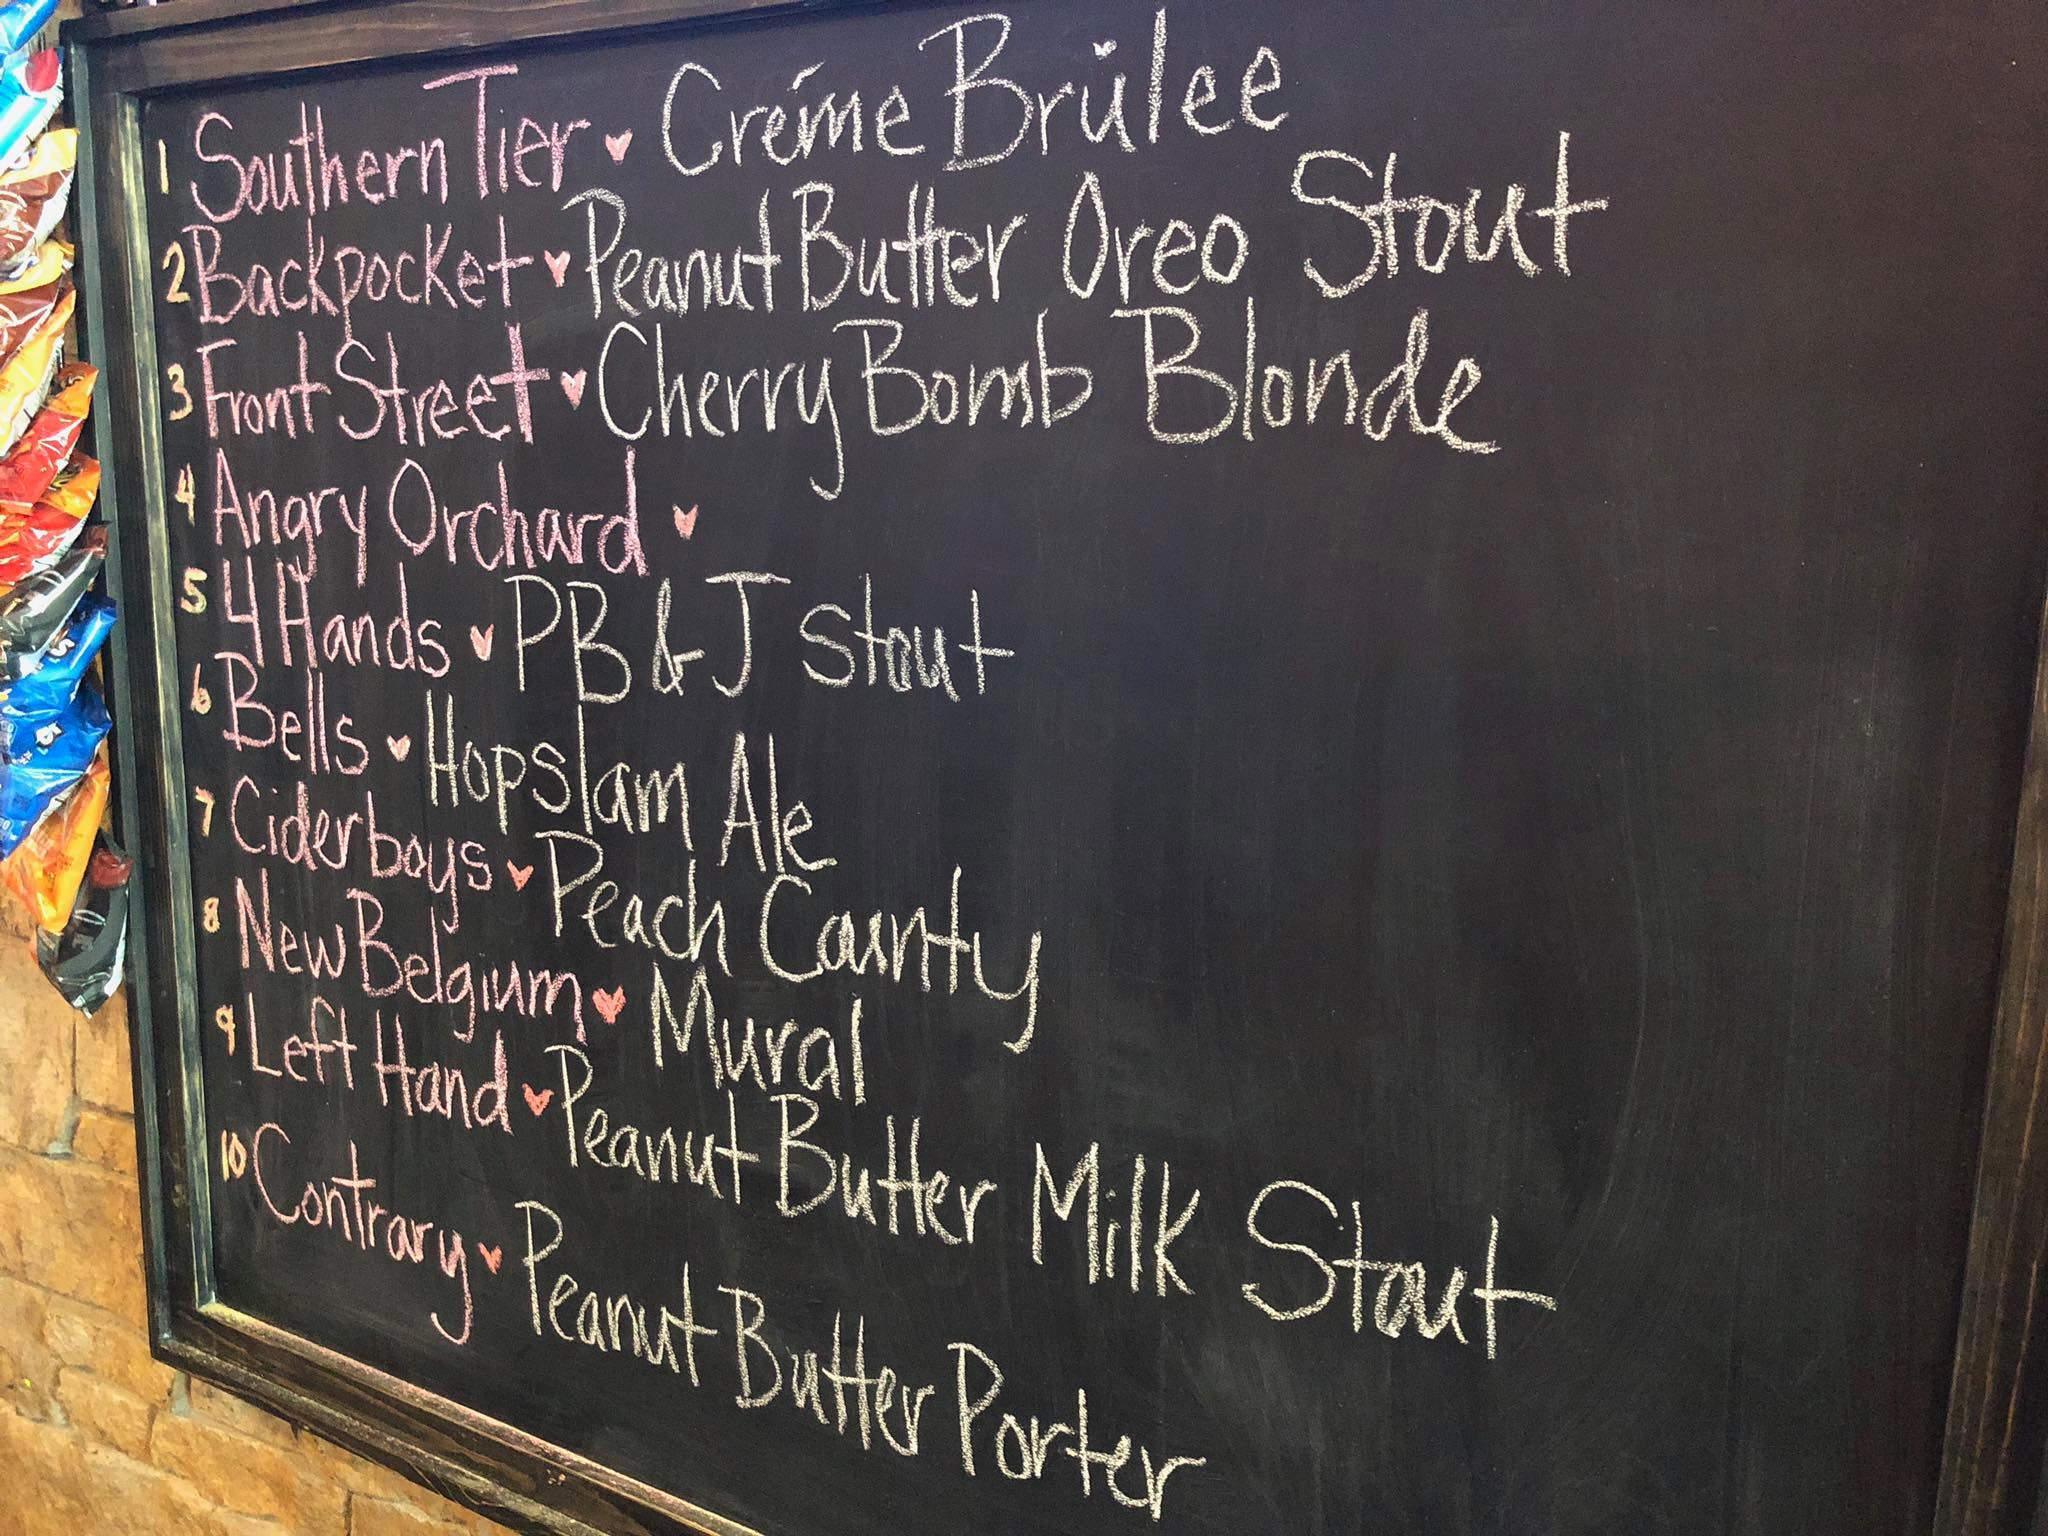 1 Southern Tier ♥ Créme Brûlee
2 Backpocket ♥ Peanut Butter Oreo Stout
3 Front Street ♥ Cherry Bomb Blonde
4 Angry Orchard ♥
5 4 Hands ♥ PB & J Stout
6 Bells ♥ Hopslam Ale
7 Ciderboys ♥ Peach County
8 New Belgium ♥ Mural
9 Left Hand ♥ Peanut Butter Milk Stout
10 Contrary ♥ Peanut Butter Porter